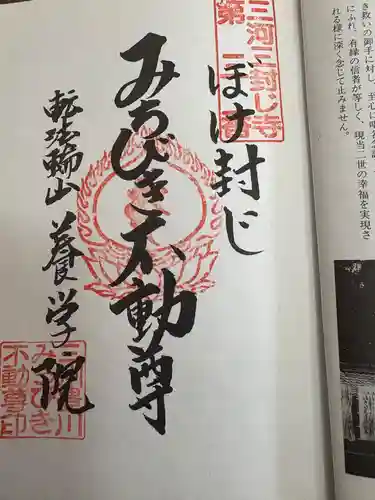 き救いの御手に対し、至心に
にふれ、有縁の信者が等しく、現当二世の幸福を実現さ
れる様に深く念じて止みません。
三河三封じ寺
第二番
ぼけ封じ
みちびき不動尊
転法輪山 養学院
三河
みちびき
不動尊印